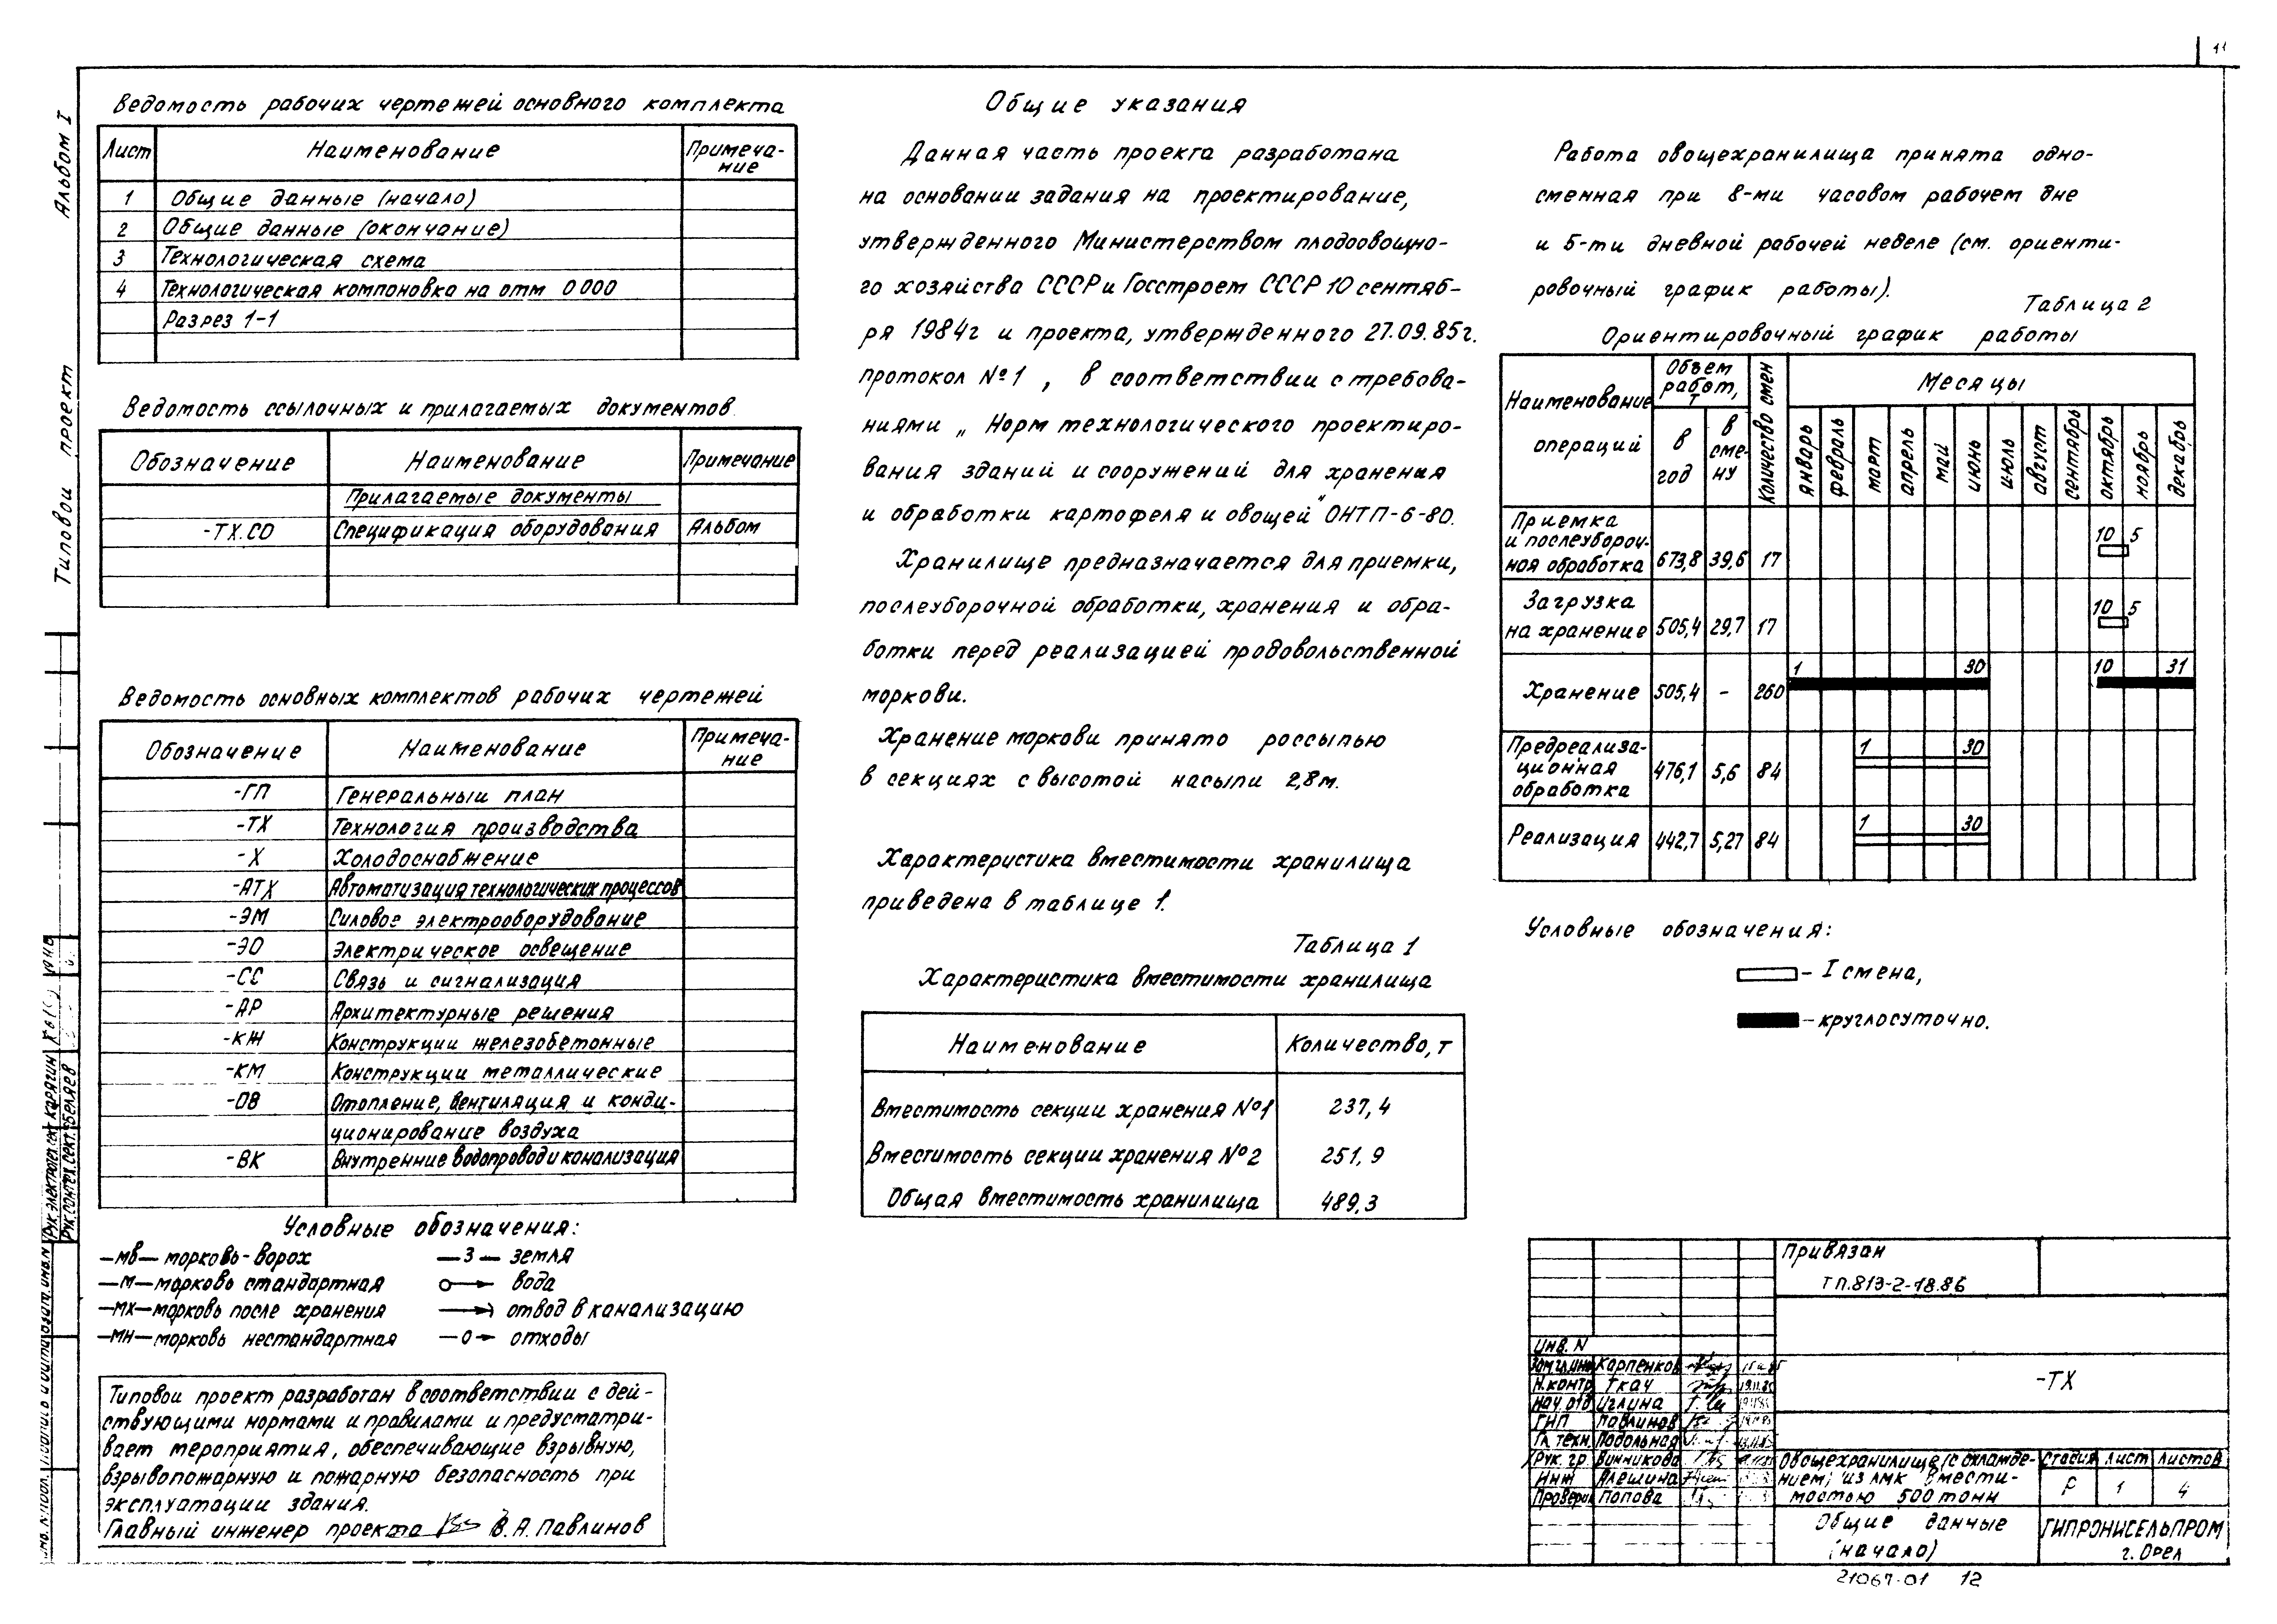 11
Альбом I
Типовой проект
Ведомость рабочих чертежей основного комплекта
Лист Наименование Примеча-
ние
1 Общие данные (начало)
2 Общие данные (окончание)
3 Технологическая схема
4 Технологическая компоновка на отм 0 000
Разрез 1-1
Ведомость ссылочных и прилагаемых документов
Обозначение Наименование Примечание
Прилагаемые документы
-ТХ.СО Спецификация оборудования Альбом
Ведомость основных комплектов рабочих чертежей
Обозначение Наименование Примеча-
ние
-ГП Генеральный план
-ТХ Технология производства
-Х Холодоснабжение
-АТХ Автоматизация технологических процессов
-ЭМ Силовое электрооборудование
-ЭО Электрическое освещение
-СС Связь и сигнализация
-АР Архитектурные решения
-КЖ Конструкции железобетонные
-КМ Конструкции металлические
-ОВ Отопление, вентиляция и конди-
ционирование воздуха
-ВК Внутренние водопровод и канализация
Условные обозначения:
—мв— морковь-ворох
—м— морковь стандартная
—мх— морковь после хранения
—мн— морковь нестандартная
—З— земля
вода
отвод в канализацию
—о— отходы
Типовой проект разработан в соответствии с дей-
ствующими нормами и правилами и предусматри-
вает мероприятия, обеспечивающие взрывную,
взрывопожарную и пожарную безопасность при
эксплуатации здания.
Главный инженер проекта В.А. Павлинов
Общие указания
Данная часть проекта разработана
на основании задания на проектирование,
утвержденного Министерством плодоовощно-
го хозяйства СССР и Госстроем СССР 10 сентяб-
ря 1984г и проекта, утвержденного 27.09.85г.
протокол №1 , в соответствии с требова-
ниями „ Норм технологического проектиро-
вания зданий и сооружений для хранения
и обработки картофеля и овощей" ОНТП-6-80.
Хранилище предназначается для приемки,
послеуборочной обработки, хранения и обра-
ботки перед реализацией продовольственной
моркови.
Хранение моркови принято россыпью
в секциях с высотой насыпи 2,8м.
Характеристика вместимости хранилища
приведена в таблице 1.
Таблица 1
Характеристика вместимости хранилища
Наименование Количество, т
Вместимость секции хранения №1 237,4
Вместимость секции хранения №2 251,9
Общая вместимость хранилища 489,3
Работа овощехранилища принята одно-
сменная при 8-ми часовом рабочем дне
и 5-ти дневной рабочей неделе (см. ориенти-
ровочный график работы).
Таблица 2
Ориентировочный график работы
Наименование операций Объем работ, т в год в сме-ну Количество смен Месяцы
январь февраль март апрель май июнь июль август сентябрь октябрь ноябрь декабрь
Приемка
и послеубороч-
ная обработка 673,8 39,6 17 10 5
Загрузка
на хранение 505,4 29,7 17 10 5
Хранение 505,4 - 260 1 30 10 31
Предреализа-
ционная
обработка 476,1 5,6 84 1 30
Реализация 442,7 5,27 84 1 30
Условные обозначения:
- I смена,
- круглосуточно.
Привязан
ТП.813-2-18.86
Инв. N
Карпенков
Н.контр Ткач
Нач.отд Иглина
ГИП Павлинов
Гл техн. Подольная
Рук. гр. Винникова
Инж Алешина
Проверил Попова
-ТХ
Овощехранилище (с охлажде-
нием) из ЛМК вмести-
мостью 500 тонн
Стадия Лист Листов
Р 1 4
Общие данные
(начало)
ГИПРОНИСЕЛЬПРОМ
г. Орел
21067-01 12
Рук электротех.сект. Карягин
Рук.сантех.сект. Беляев